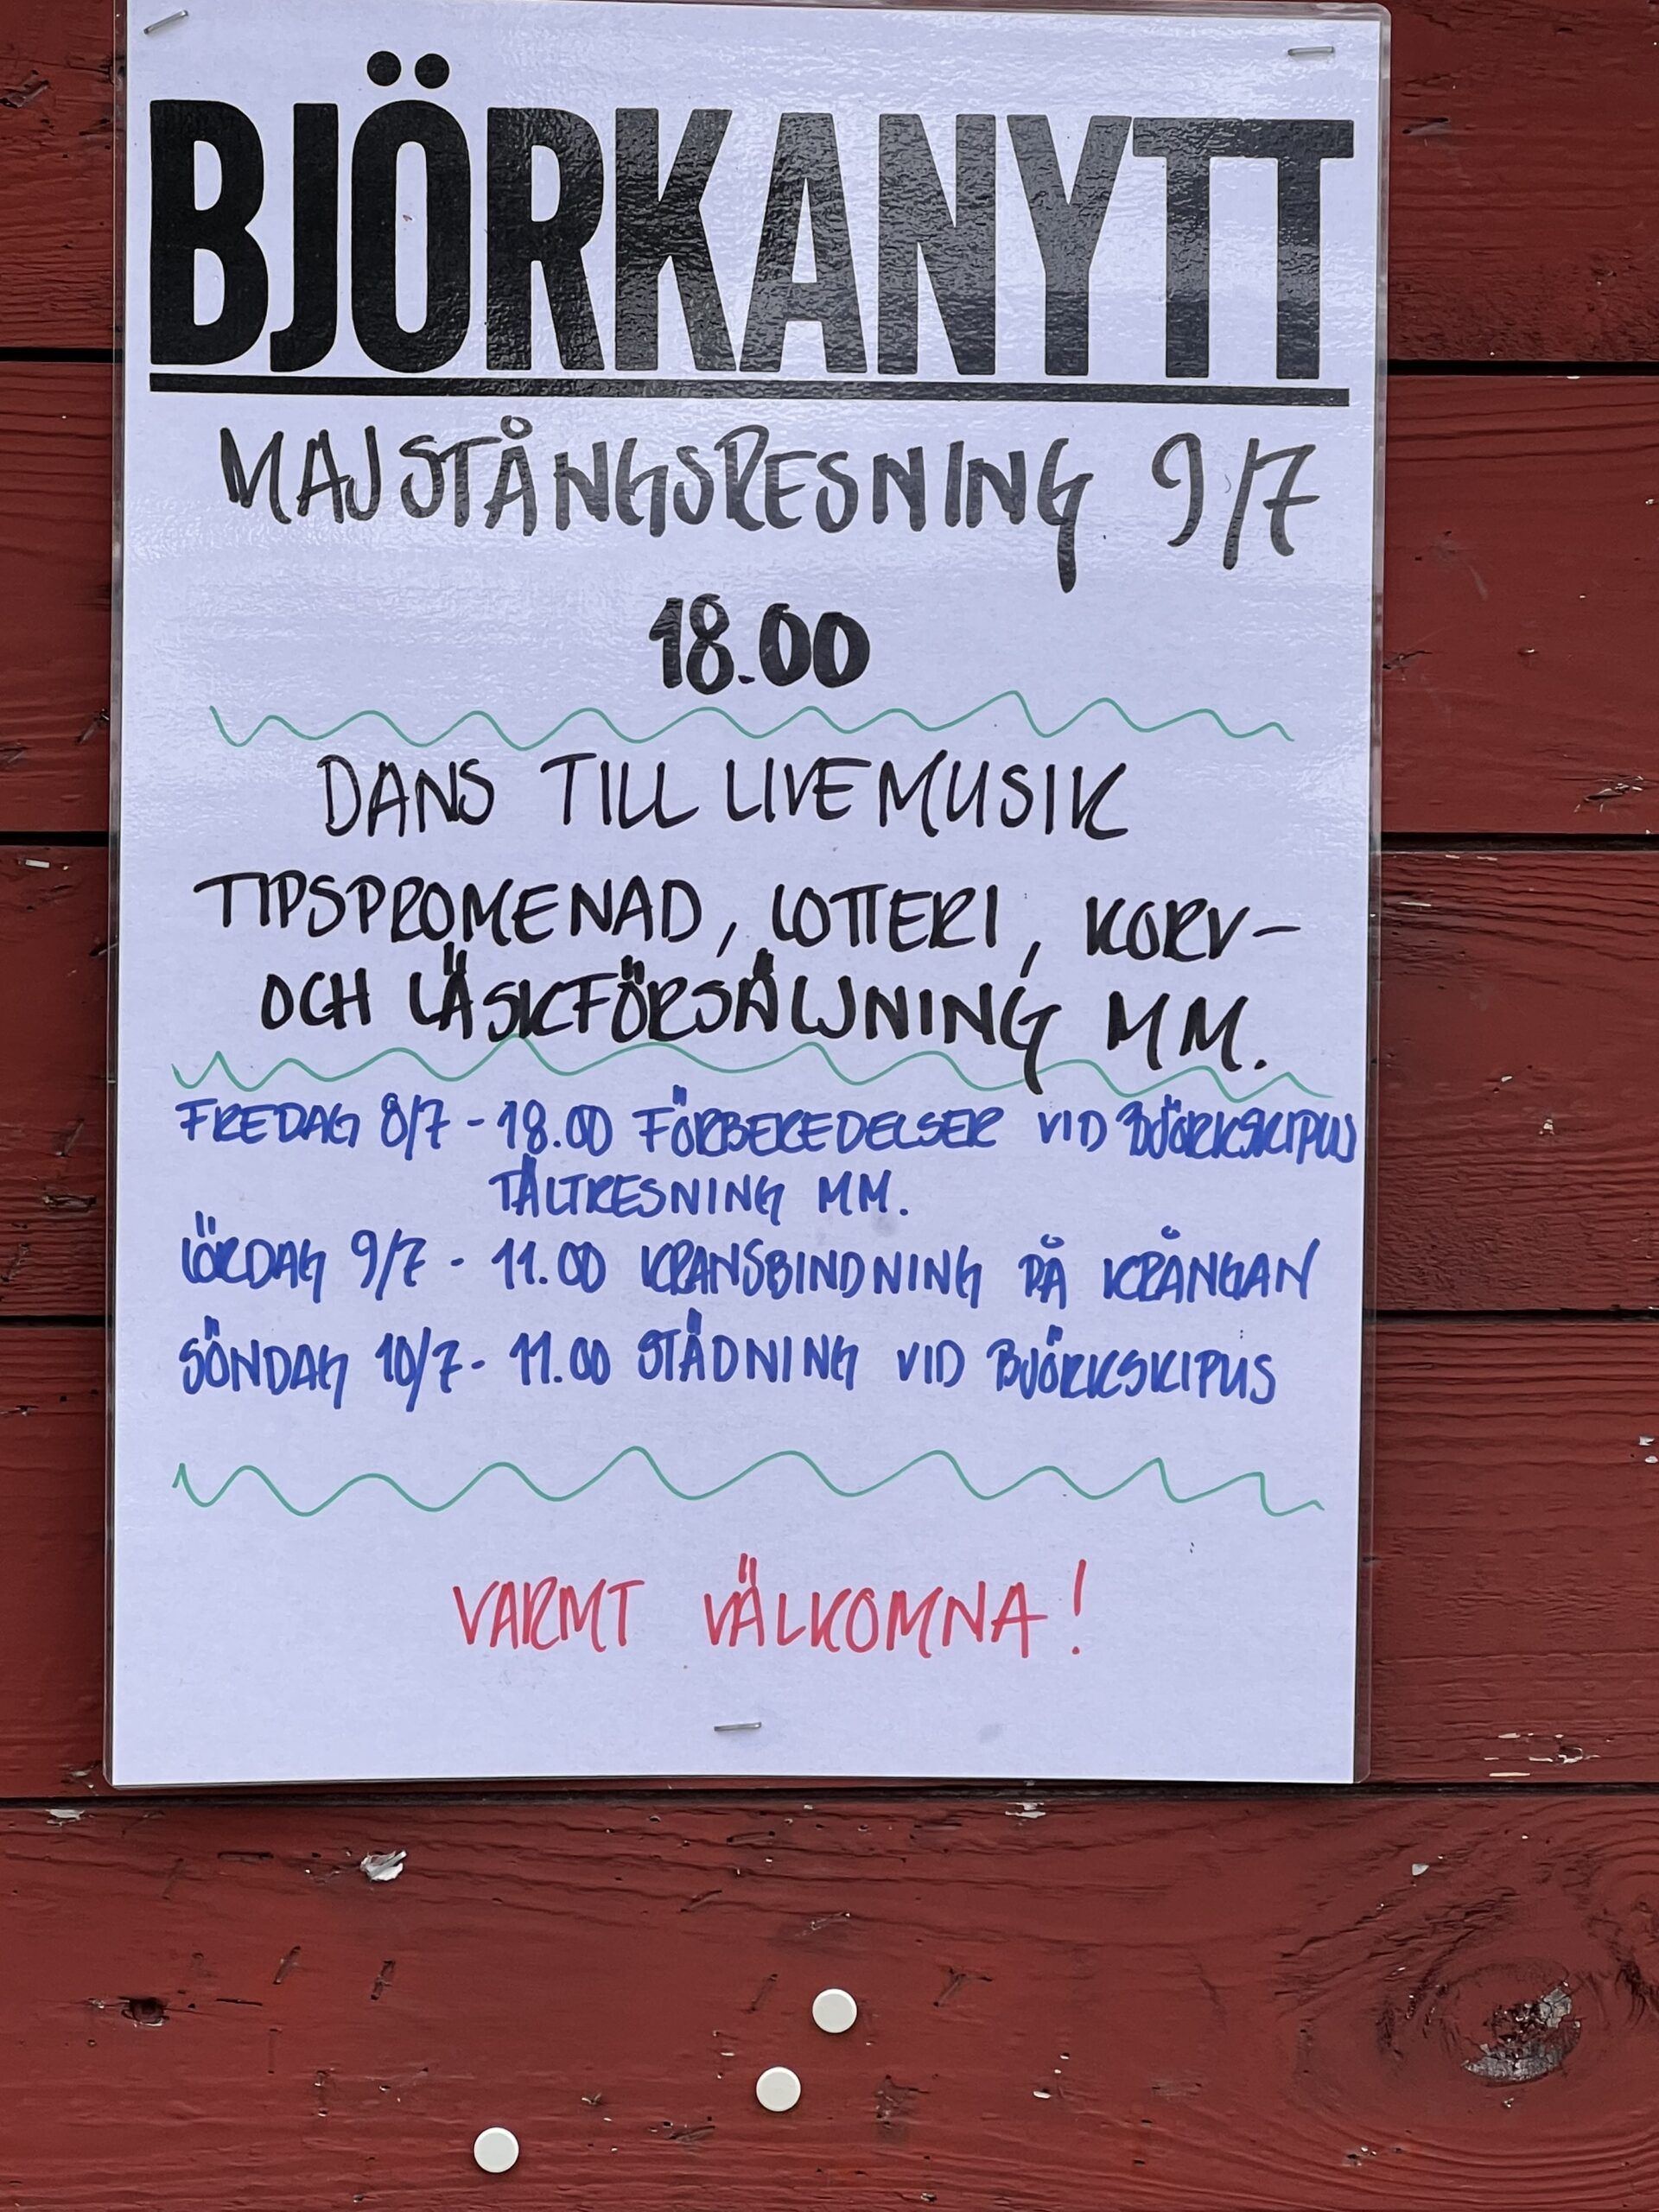 BJÖRKANYTT
MAJSTÅNGSRESNING 9/7
18.00
DANS TILL LIVEMUSIK
TIPSPROMENAD, LOTTERI, KORV-
OCH LÄSKFÖRSÄLJNING MM.
FREDAG 8/7 - 18.00 FÖRBEREDELSER VID BJÖRKSKIPUS
TÄLTRESNING MM.
LÖRDAG 9/7 - 11.00 KRANSBINDNING PÅ KRÅNGAN
SÖNDAG 10/7 - 11.00 STÄDNING VID BJÖRKSKIPUS
VARMT VÄLKOMNA!